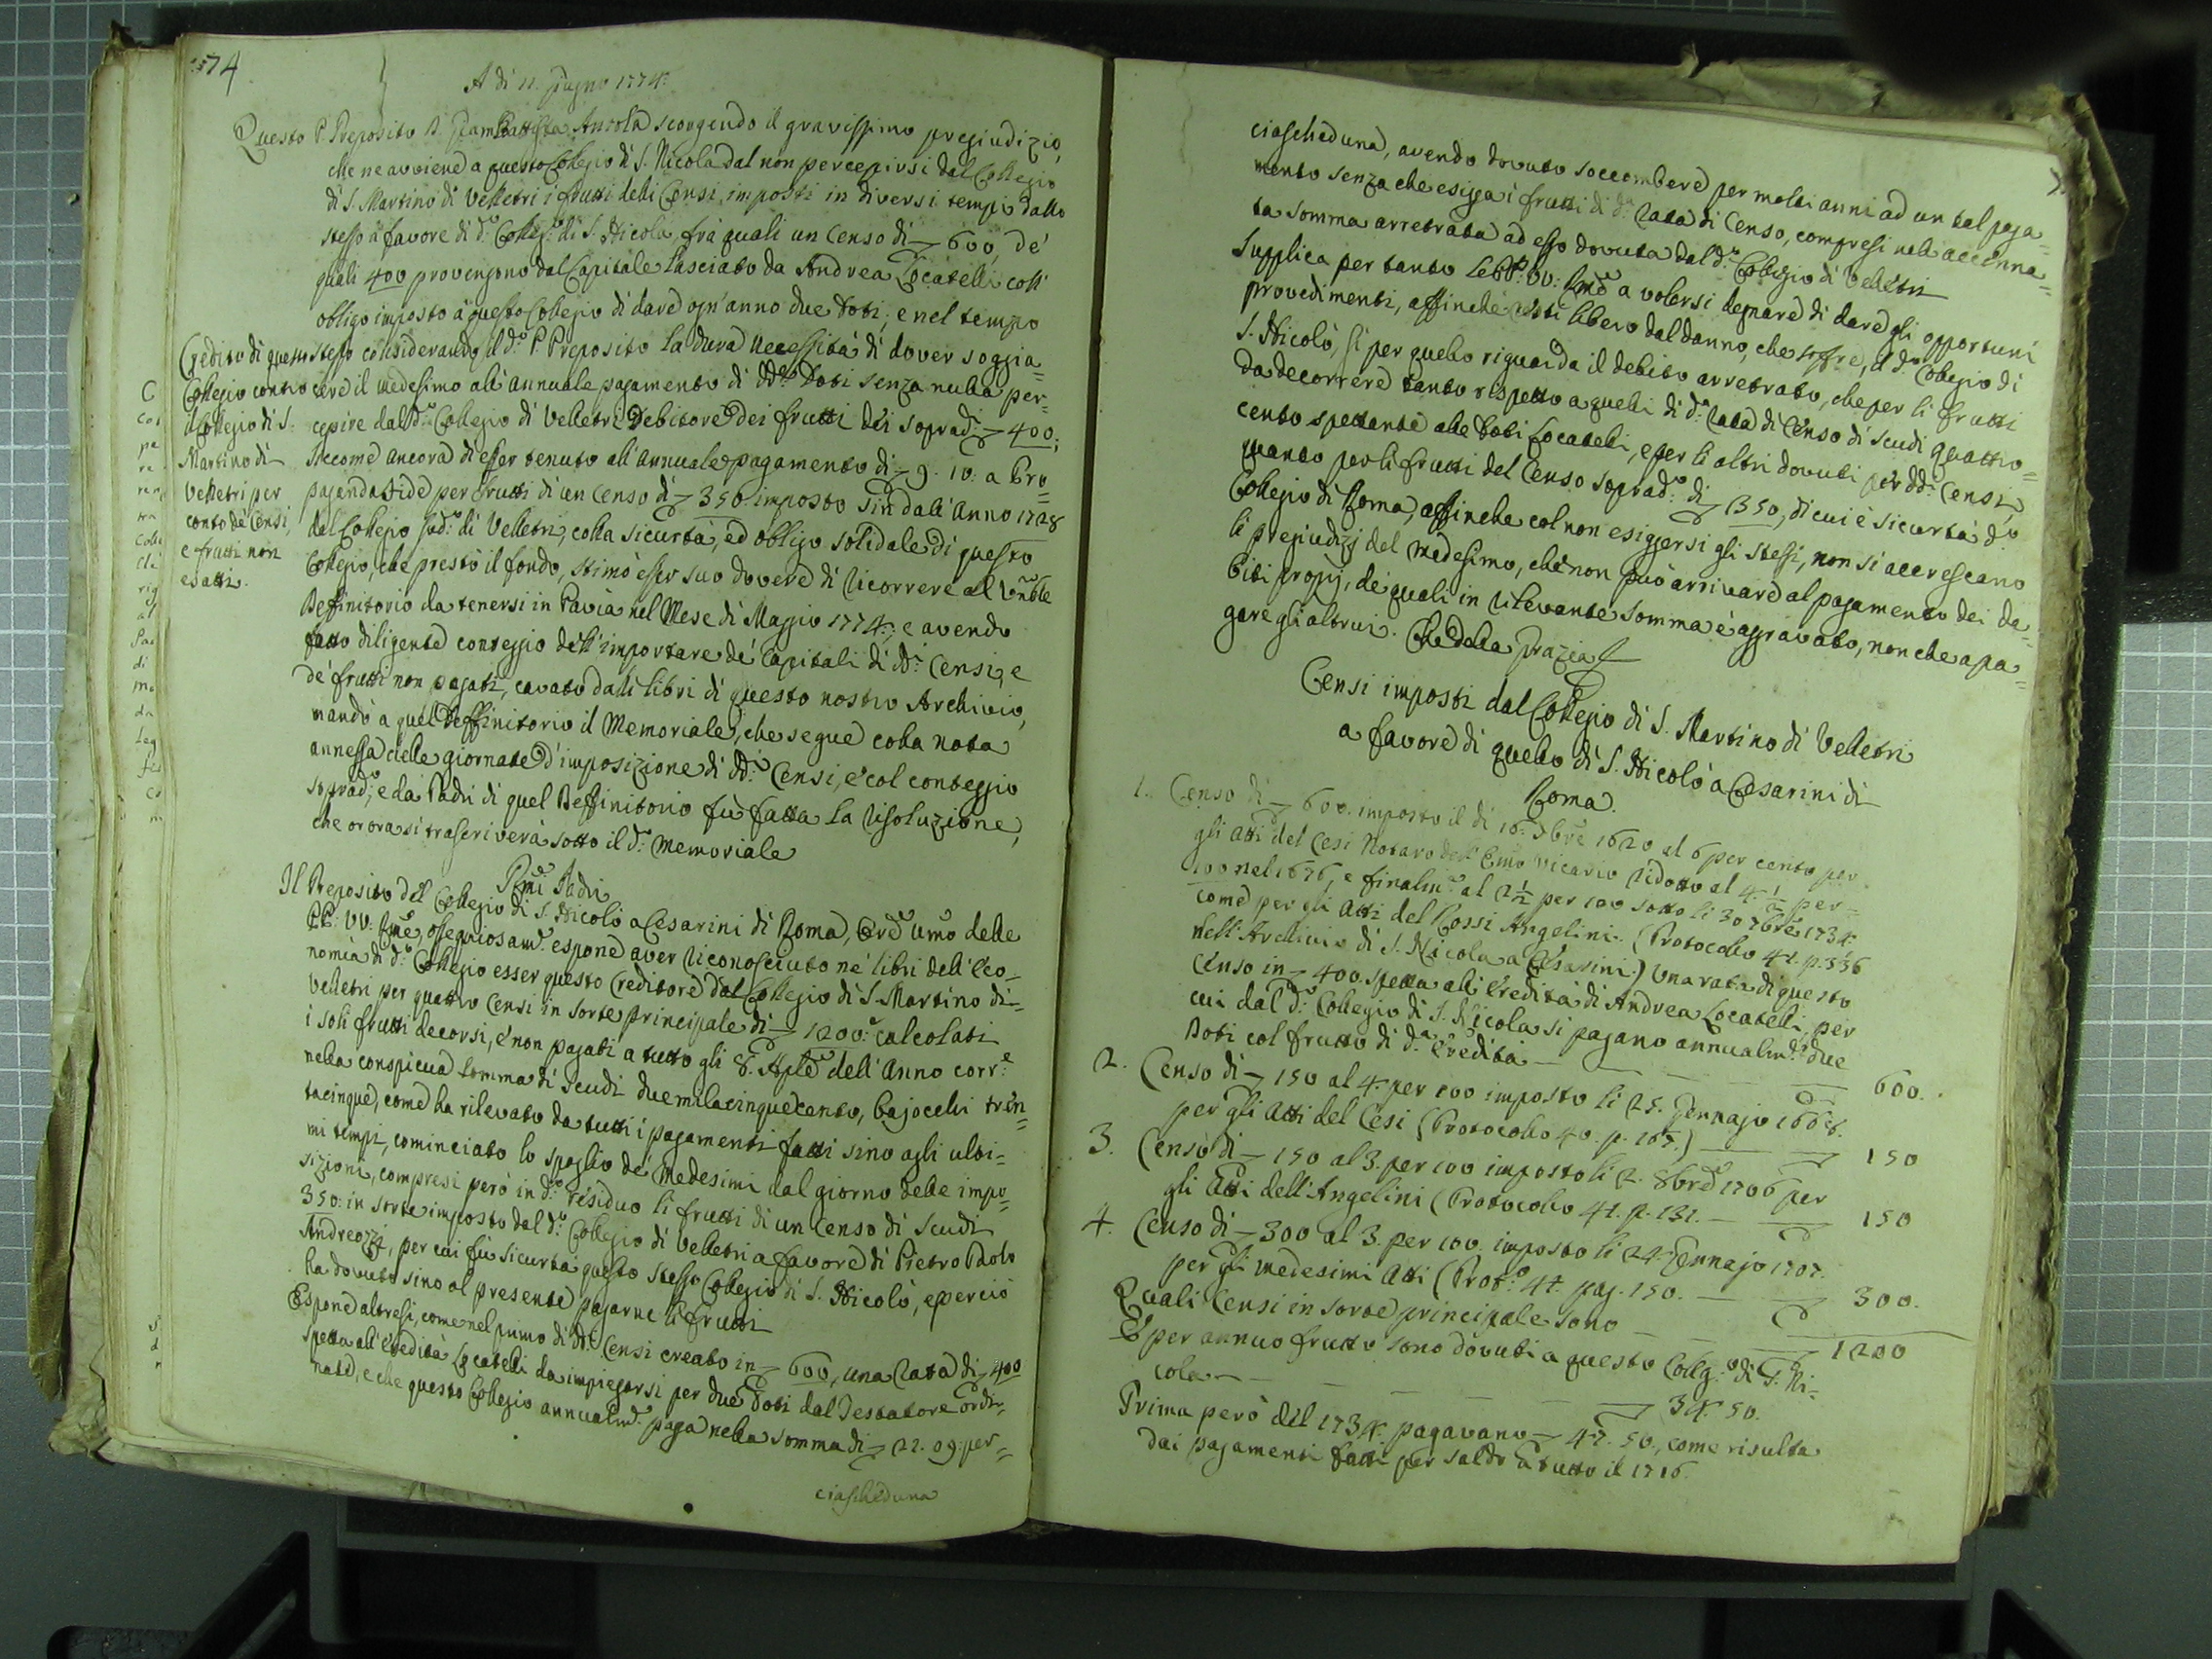 74
A dì 11. Giugno 1774.
Questo P. Preposito D. Giambattista Ancola scorgendo il gravissimo pregiudizio,
che ne avviene a questo Collegio di S. Nicola dal non percepirsi dal Collegio
di S. Martino di Velletri i frutti delli Censi, imposti in diversi tempi dallo
stesso a favore di d.o Colleg.o di S. Nicola, frà quali un Censo di 600, de'
quali 400 provengono dal Capitale lasciato da Andrea Locatelli coll'
obligo imposto a questo Collegio di dare ogn'anno due Doti; e nel tempo
stesso considerando il d.o P. Preposito la dura necessità di dover soggia=
cere il medesimo all'annuale pagamento di dd.e Doti senza nulla per=
cepire dal d.o Collegio di Velletri Debitore dei frutti dei soprad.i 400;
siccome ancora di esser tenuto all'annuale pagamento di 9. 10: a Pro=
paganda Fide per frutti di un Censo di 350 imposto sin dall'anno 1728
dal Collegio sud.o di Velletri, colla sicurtà, ed obligo solidale di questo
Collegio, che prestò il fondo, stimò esser suo dovere di ricorrere al Vnble
Deffinitorio da tenersi in Pavia nel Mese di Maggio 1774; e avendo
fatto diligente conteggio dell'importare de' Capitali di dd.i Censi, e
de' frutti non pagati, cavato dalli libri di questo nostro Archivio,
mandò a quel Deffinitorio il Memoriale, che segue colla nota
annessa delle giornate d'imposizione di dd.i Censi, e col conteggio
soprad.o; e da Padri di quel Deffinitorio fù fatta la risoluzione,
che or ora si trascriverà sotto il d.o Memoriale
Credito di questo
Collegio contro
il Collegio di S.
Martino di
Velletri per
conto de Censi,
e frutti non
esatti.
Rmi Padri
Il Preposito del Collegio di S. Nicolò a Cesarini di Roma, Ore umo delle
PP: VV: Rme, ossequiosam.e espone aver riconosciuto ne' libri dell'eco=
nomìa di d.o Collegio esser questo Creditore dal Collegio di S. Martino di
Velletri per quattro Censi in sorte principale di 1200: calcolati
i soli frutti decorsi, e non pagati a tutto gli 8. Aple dell'anno corr.e
nella conspicua somma di scudi duemilacinquecento, bajocchi tren=
tacinque, come ha rilevato da tutti i pagamenti fatti sino agli ulti=
mi tempi, cominciato lo spoglio de' medesimi dal giorno delle impo=
sizioni, compresi però in d.o residuo li frutti di un Censo di scudi
350: in sorte imposto dal d.o Collegio di Velletri a favore di Pietro Paolo
Andreozzi, per cui fù sicurtà questo stesso Collegio di S. Nicolò, e perciò
ha dovuto sino al presente pagarne li frutti
Espone altresì, come nel primo di dd.i Censi creato in 600, una rata di 400
spetta all'eredità Locatelli da impiegarsi per due Doti dal Testatore ordi=
nate, e che questo Collegio annualm.e paga nella somma di 22. 09: per=
ciascheduna
ciascheduna, avendo dovuto soccombere per molti anni ad un tal paga=
mento senza che esigga i frutti di d.a rata di Censo, compresi nell'accenna=
ta somma arretrata ad esso dovuta dal d.o Collegio di Velletri
Supplica per tanto le PP: VV: Rme a volersi degnare di dare gli opportuni
provedimenti, affinchè resti libero dal danno, che soffre, il d.o Collegio di
S. Nicolò, sì per quello riguarda il debito arretrato, che per li frutti
da decorrere tanto rispetto a quelli di d.a rata di Censo di scudi quattro=
cento spettante alle Doti Locatelli, e per li altri dovuti per dd.i Censi,
quanto per li frutti del Censo soprad.o di 350, di cui è sicurtà d.o
Collegio di Roma, affinche col non esiggersi gli stessi, non si accrescano
li pregiudizj del medesimo, che non può arrivare al pagamento dei de=
biti proprj, de' quali in rilevante somma è aggravato, non che a pa=
gare gli altrui. Che della Grazia
Censi imposti dal Collegio di S. Martino di Velletri
a favore di quello di S. Nicolò a Cesarini di
Roma.
1. Censo di 600. imposto il dì 16. Xbre 1620 al 6 per cento per
gli Atti del Cesi Notaro dell'Emo Vicario ridotto al 4 1/2 per=
100 nel 1676, e finalm.e al 2 1/2 per 100 sotto li 30 7bre 1734.
come per gli Atti del Rossi Angelini. (Protocollo 41. p. 336
nell'Archivio di S. Nicola a Cesarini.) Una rata di questo
Censo in 400. spetta all'Eredità di Andrea Locatelli, per
cui dal d.o Collegio di S. Nicola si pagano annualm.e due
Doti col frutto di d.a Eredità — 600.
2. Censo di 150 al 4. per 100 imposto li 25. Gennajo 1668.
per gli Atti del Cesi (Protocollo 40. p. 167.) — 150
3. Censo di 150 al 3. per 100 imposto li 2. 8bre 1706 per
gli Atti dell'Angelini (Protocollo 41. p. 131. — 150
4. Censo di 300 al 3. per 100. imposto li 24. Gennajo 1707.
per gli medesimi Atti (Prot.o 41. pag. 150. — 300.
Quali Censi in sorte principale sono — 1200
E per annuo frutto sono dovuti a questo Colleg.o di S. Ni=
cola — 34. 50.
Prima però del 1734. pagavano 47. 50., come risulta
dai pagamenti fatti per saldo a tutto il 1716.